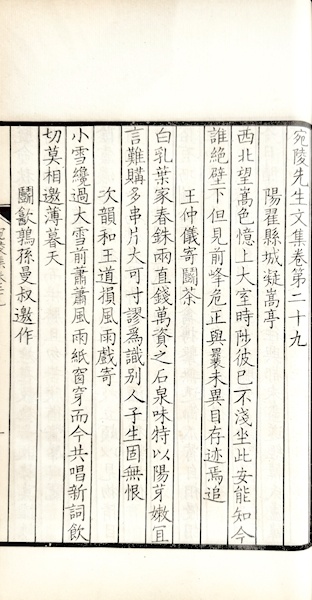 宛陵先生文集卷第二十九
陽翟縣城凝嵩亭
西北望嵩色憶上大室時陟彼巳不淺坐此安能知今
誰絕壁下但見前峰危正與曩未異目存迹焉追
王仲儀寄鬬茶
白乳葉家春銖兩直錢萬資之石泉味特以陽芽嫩冝
言難購多串片大可寸謬為識別人予生固無恨
次韻和王道損風雨戲寄
小雪纔過大雪前蕭蕭風雨紙窗穿而今共唱新詞飲
切莫相邀薄暮天
鬬歙鶉孫曼叔邀作